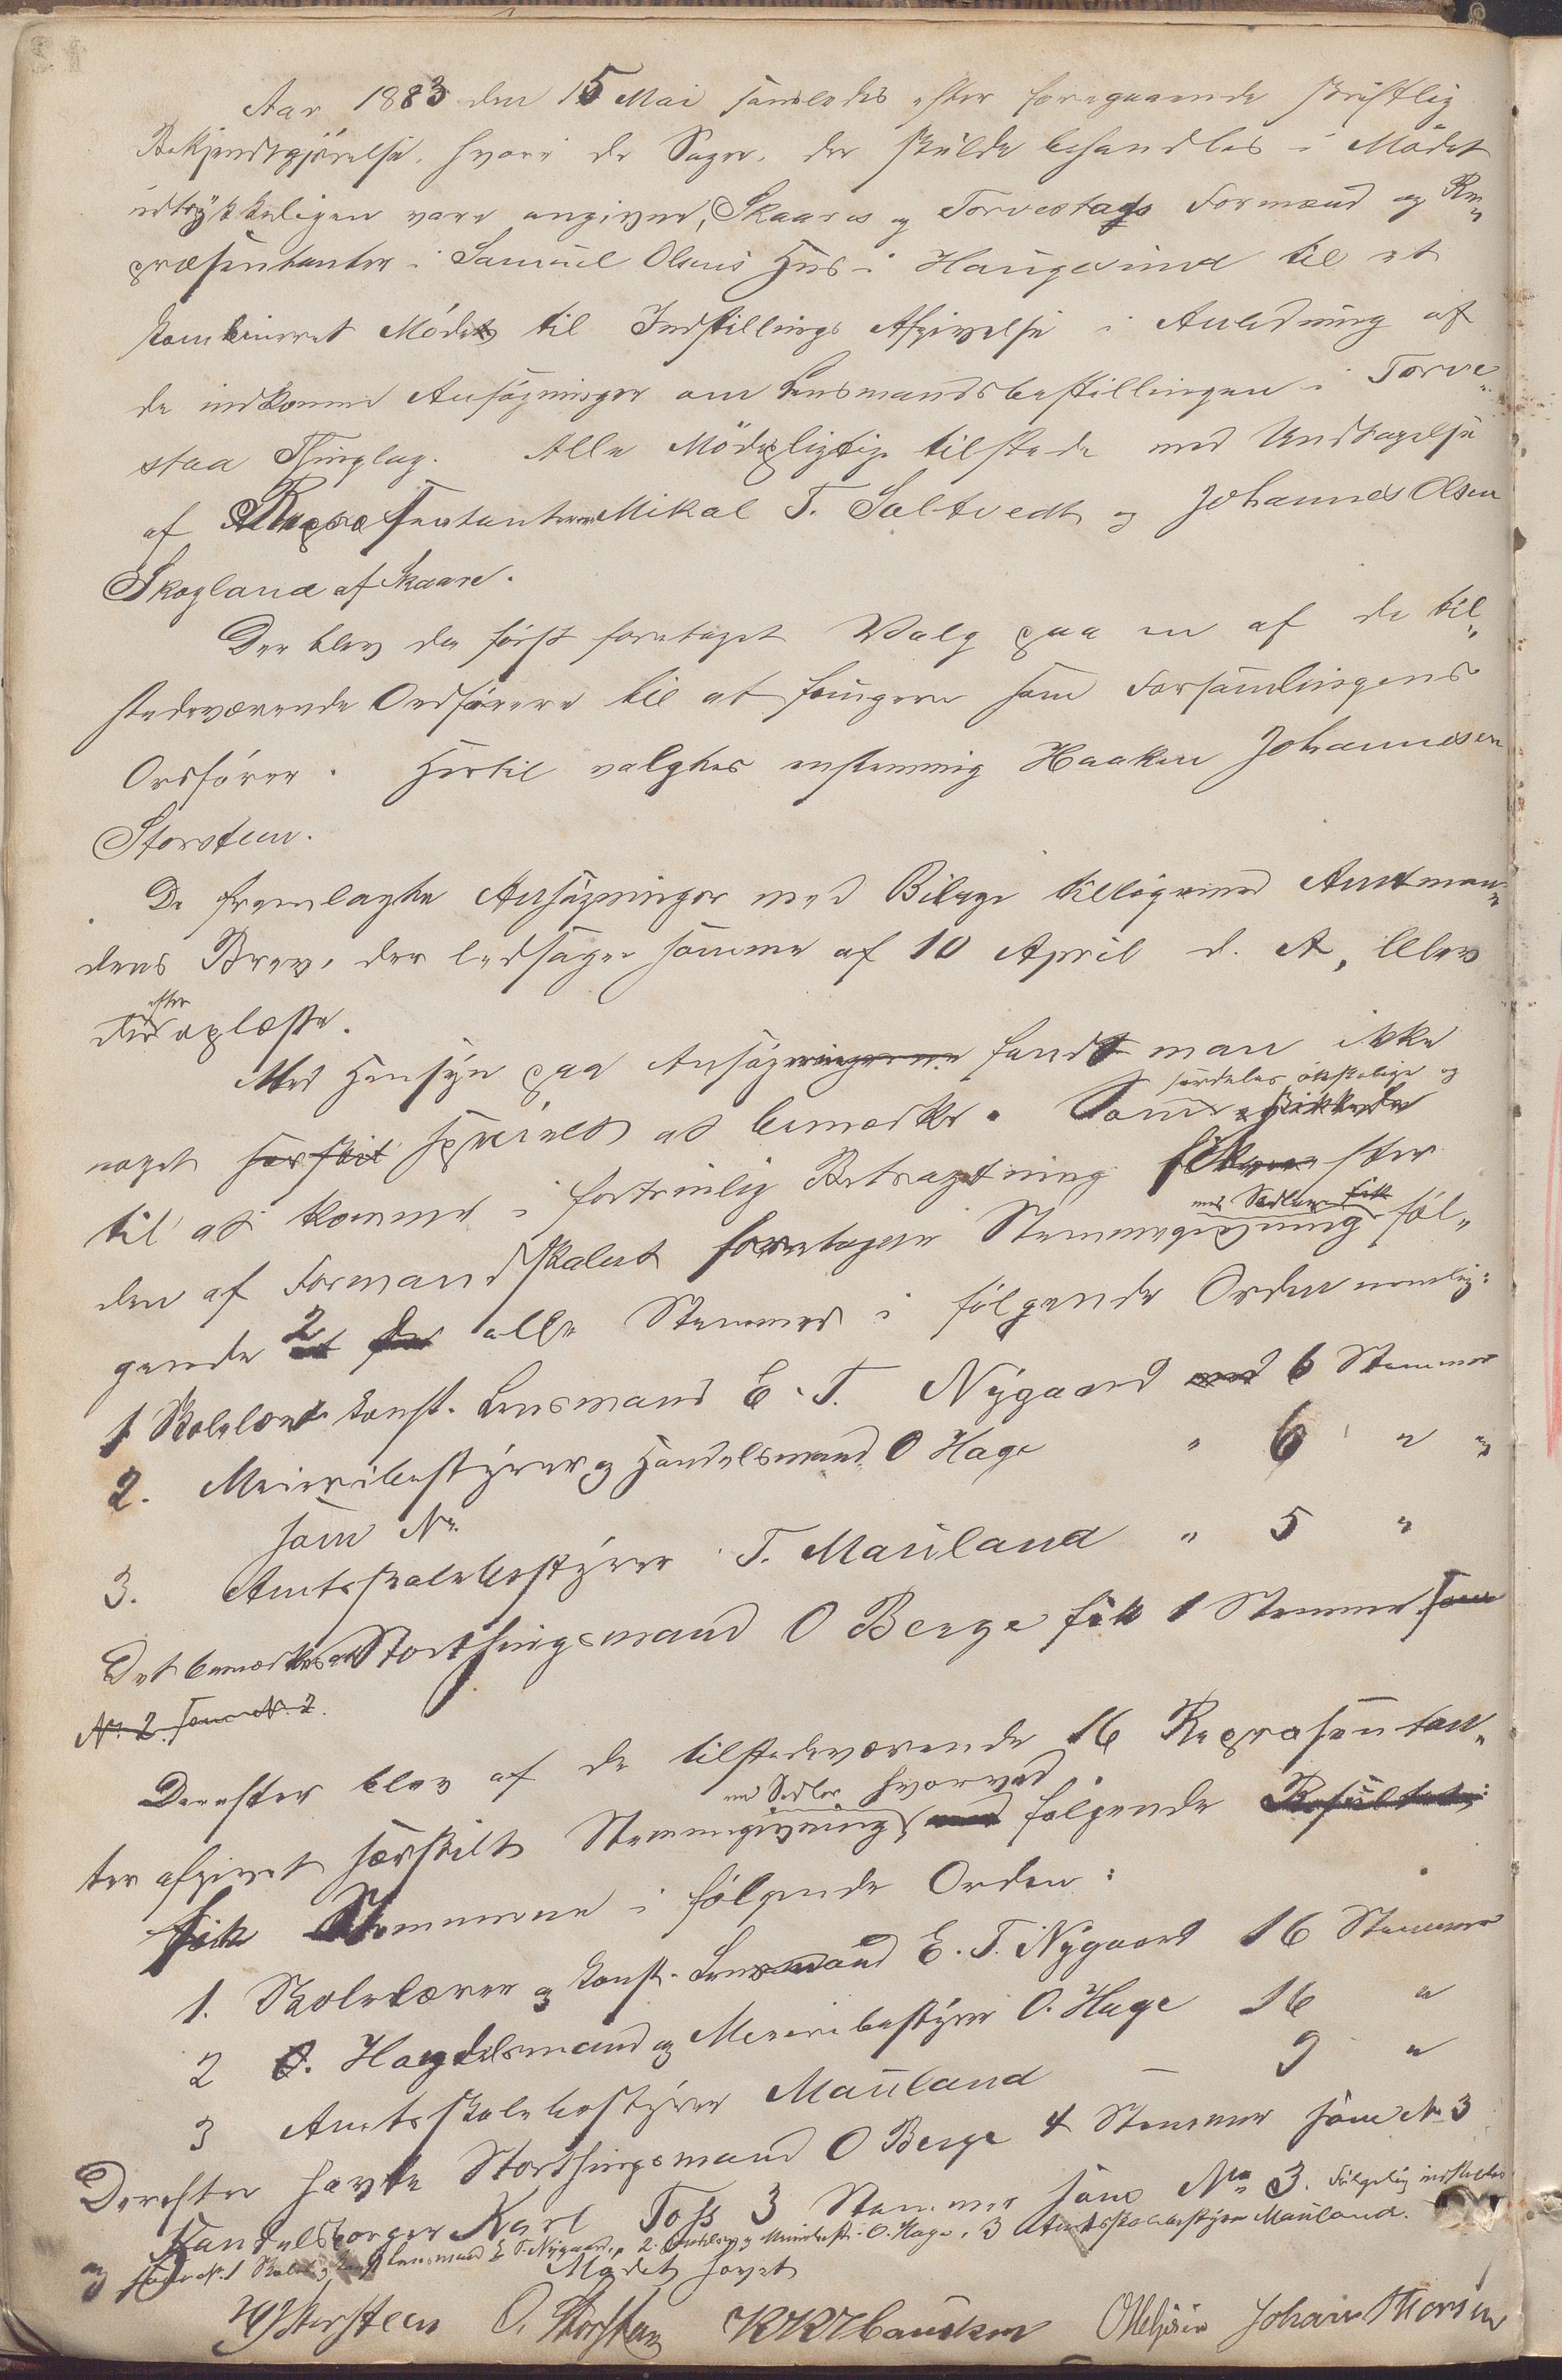 Aar 1883 den 15 Mai samledes efter foregaaende skriftlig
Bekjendtgjörelse, hvori de Sager, der skulde behandles i Mödet
udtrykkeligen vare angivne, Skaares og Torvestads Formænd og Re„
præsentanter i Samuel Olsens Hus i Haugesund til et
kombineret Möde til Indstillings Afgivelse i Anledning af
de indkomne Ansögninger om Lensmandsbestillingen i Torve„
staa Thinglag. Alle Mödepligtige tilstede med Undtagelse
af Repræsentanterne Mikal T. Saltvedt og Johannes Olsen
Skogland af Skaare.
Der blev da först foretaget Valg paa en af de til„
stedeværende Ordförere til at fungere som Forsamlingens
Ordförer. Hertil valgtes enstemmig Haakon Johannesen
Storsteen.
De fremlagte Ansögninger med Bilage tilligemed Amtman„
dens Brev, der ledsager samme af 10 April d. A, blev
derefter oplæste.
Med Hensyn paa Ansögningerne fandt man ikke
særdeles önskelige og
noget særskilt specielt at bemærke. Som skikkede
til at komme i fortrinlig Betragtning fik efter
med Sedler fik
den af Formandskabet foretagne Stemmegivning föl„
gende 2 alle Stemmer i fölgende Orden nemlig:
1 Skolelærer konst. Lensmand E. T. Nygaard med 6 Stemmer
2. Meieribestyrer og Handelsmand O Hage " 6 " "
som No
3. Amtsskolebestyrer T. Mauland " 5 "
Det bemærkes at Storthingsmand O Berge fik 1 Stemme som
No 2. som No 2.
Derefter blev af de tilstedeværende 16 Repræsentan„
med Sedler hvorved
ter afgivet særskilt Stemmegivning med fölgende Resultat:
fik Stemmerne i fölgende Orden:
1. Skolelærer og konst. Lensmand E. T. Nygaard 16 Stemmer
2 O. Handelsmand og Meieribestyrer O. Hage 16 "
3 Amtsskolebestyrer Mauland – 9 "
Derefter havte Storthingsmand O Berge 4 Stemmer som No 3
og Handelsborger Karl Toss 3 Stemmer som No 3. Fölgelig indstilles
som No 1 Skolel. og konst. Lensmand E T. Nygaard, 2. Handelsm. og Meieribest. O. Hage, 3 Amtsskolebestyrer Mauland.
Mödet hævet
HJStorsteen O. Storsteen Johan Thorsen